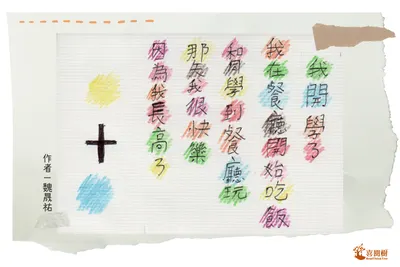 我開學了
我在餐廳開始吃飯
和同學到餐廳玩
那天我很快樂
因為我長高了
作者－魏晟祐
喜憨樹